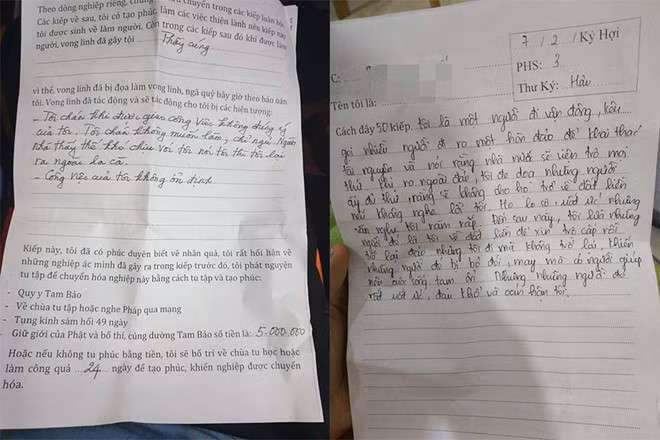 Theo dòng nghiệp riêng, chung, chuyển trong các kiếp luân hồi.
Các kiếp về sau, tôi có tạo phúc, làm các việc thiện lành nên kiếp này
tôi được sinh về làm người. Còn trong các kiếp sau đó khi được làm
người, vong linh đã gây tội
vì thế, vong linh đã bị đọa làm vong linh, ngã quỷ bây giờ theo báo oán
tôi. Vong linh đã tác động và sẽ tác động cho tôi bị các hiện tượng:
- Tôi chán khi được giao công việc không đúng ý
của tôi. Tôi chán không muốn làm, chỉ ngủ. Người
nhà thấy thế khó chịu với tôi nói tôi thì tôi lại
ra ngoài la cà.
- Công việc của tôi không ổn định
Kiếp này, tôi đã có phúc duyên biết về nhân quả, tôi rất hối hận về
những nghiệp ác mình đã gây ra trong kiếp trước đó, tôi phát nguyện
tu tập để chuyển hóa nghiệp này bằng cách tu tập và tạo phúc:
- Quy y Tam Bảo
- Về chùa tu tập hoặc nghe Pháp qua mạng
- Tụng kinh sám hối 49 ngày
- Giữ giới của Phật và bố thí, cúng dường Tam Bảo số tiền là: 5.000.000
Hoặc nếu không tu phúc bằng tiền, tôi sẽ bố trí về chùa tu học hoặc
làm công quả 24 ngày để tạo phúc, khiến nghiệp được chuyển
hóa.
7 / 2 / Kỷ Hợi
PHS: 3
Thư Ký: Hải
C:
Tên tôi là:
Cách đây 50 kiếp. Tôi là một người đi vận động, kêu
gọi nhiều người đi ra một hòn đảo để khai thác
tài nguyên và nói rằng nhà nước sẽ viện trợ mọi
thứ. Khi ra ngoài đảo, tôi đe dọa những người
ấy đủ thứ, rằng sẽ không cho họ trở về đất liền
nếu không nghe lời tôi. Họ lo sợ, uất ức nhưng
vẫn nghe tôi răm rắp. Đời sau này, tôi lừa những
người đó là tôi về đất liền để xin trợ cấp rồi
trở lại đảo nhưng tôi đi mà không trở lại, khiến
những người đó bị bỏ đói, may mà có người giúp
nên cuộc sống tạm ổn. Nhưng những người đó
rất uất ức, đau khổ và oán hận tôi.